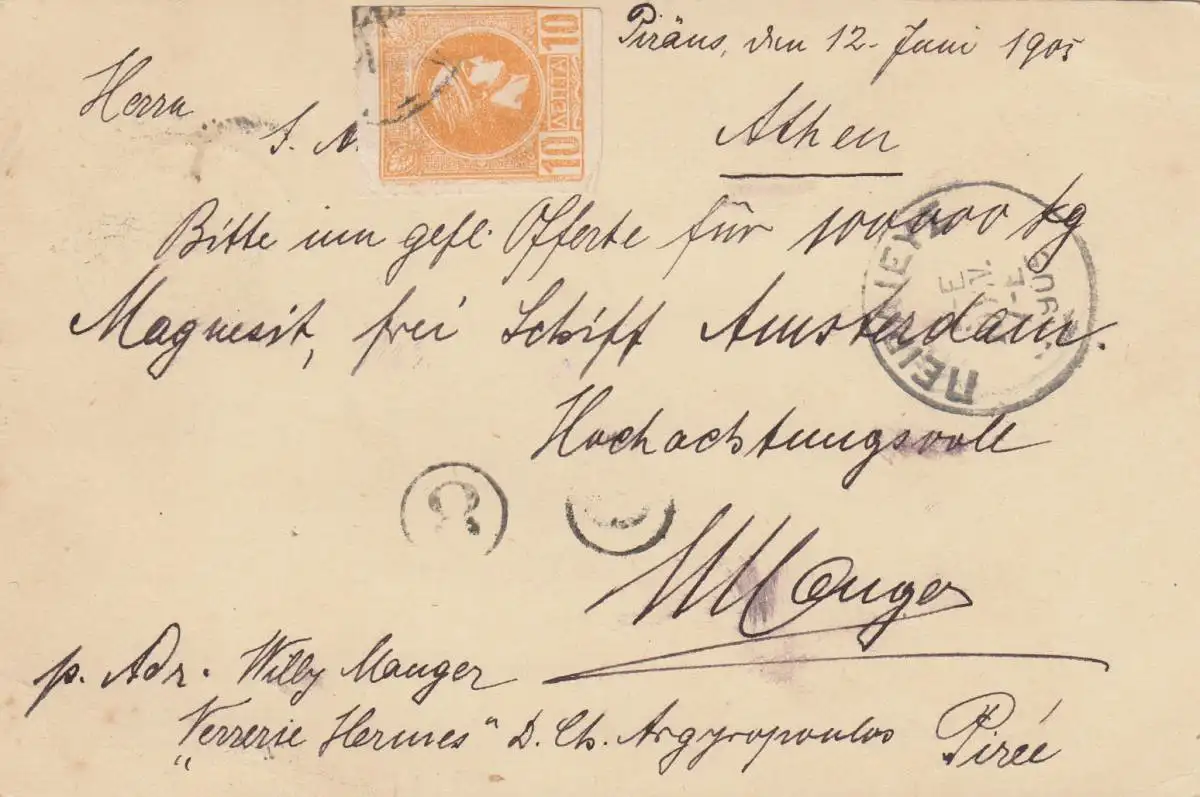 Piräus, den 12. Juni 1905
Herrn
S. N.
Athen
Bitte um gefl. Offerte für 100000 kg
Magnesit, frei Schiff Amsterdam.
Hochachtungsvoll
WManger
p. Adr. Willy Manger
„Verrerie Hermes“ D. Ch. Argyropoulos Pirée
10 ΛΕΠΤΑ 10
ΠΕΙΡΑΙΕΥΣ